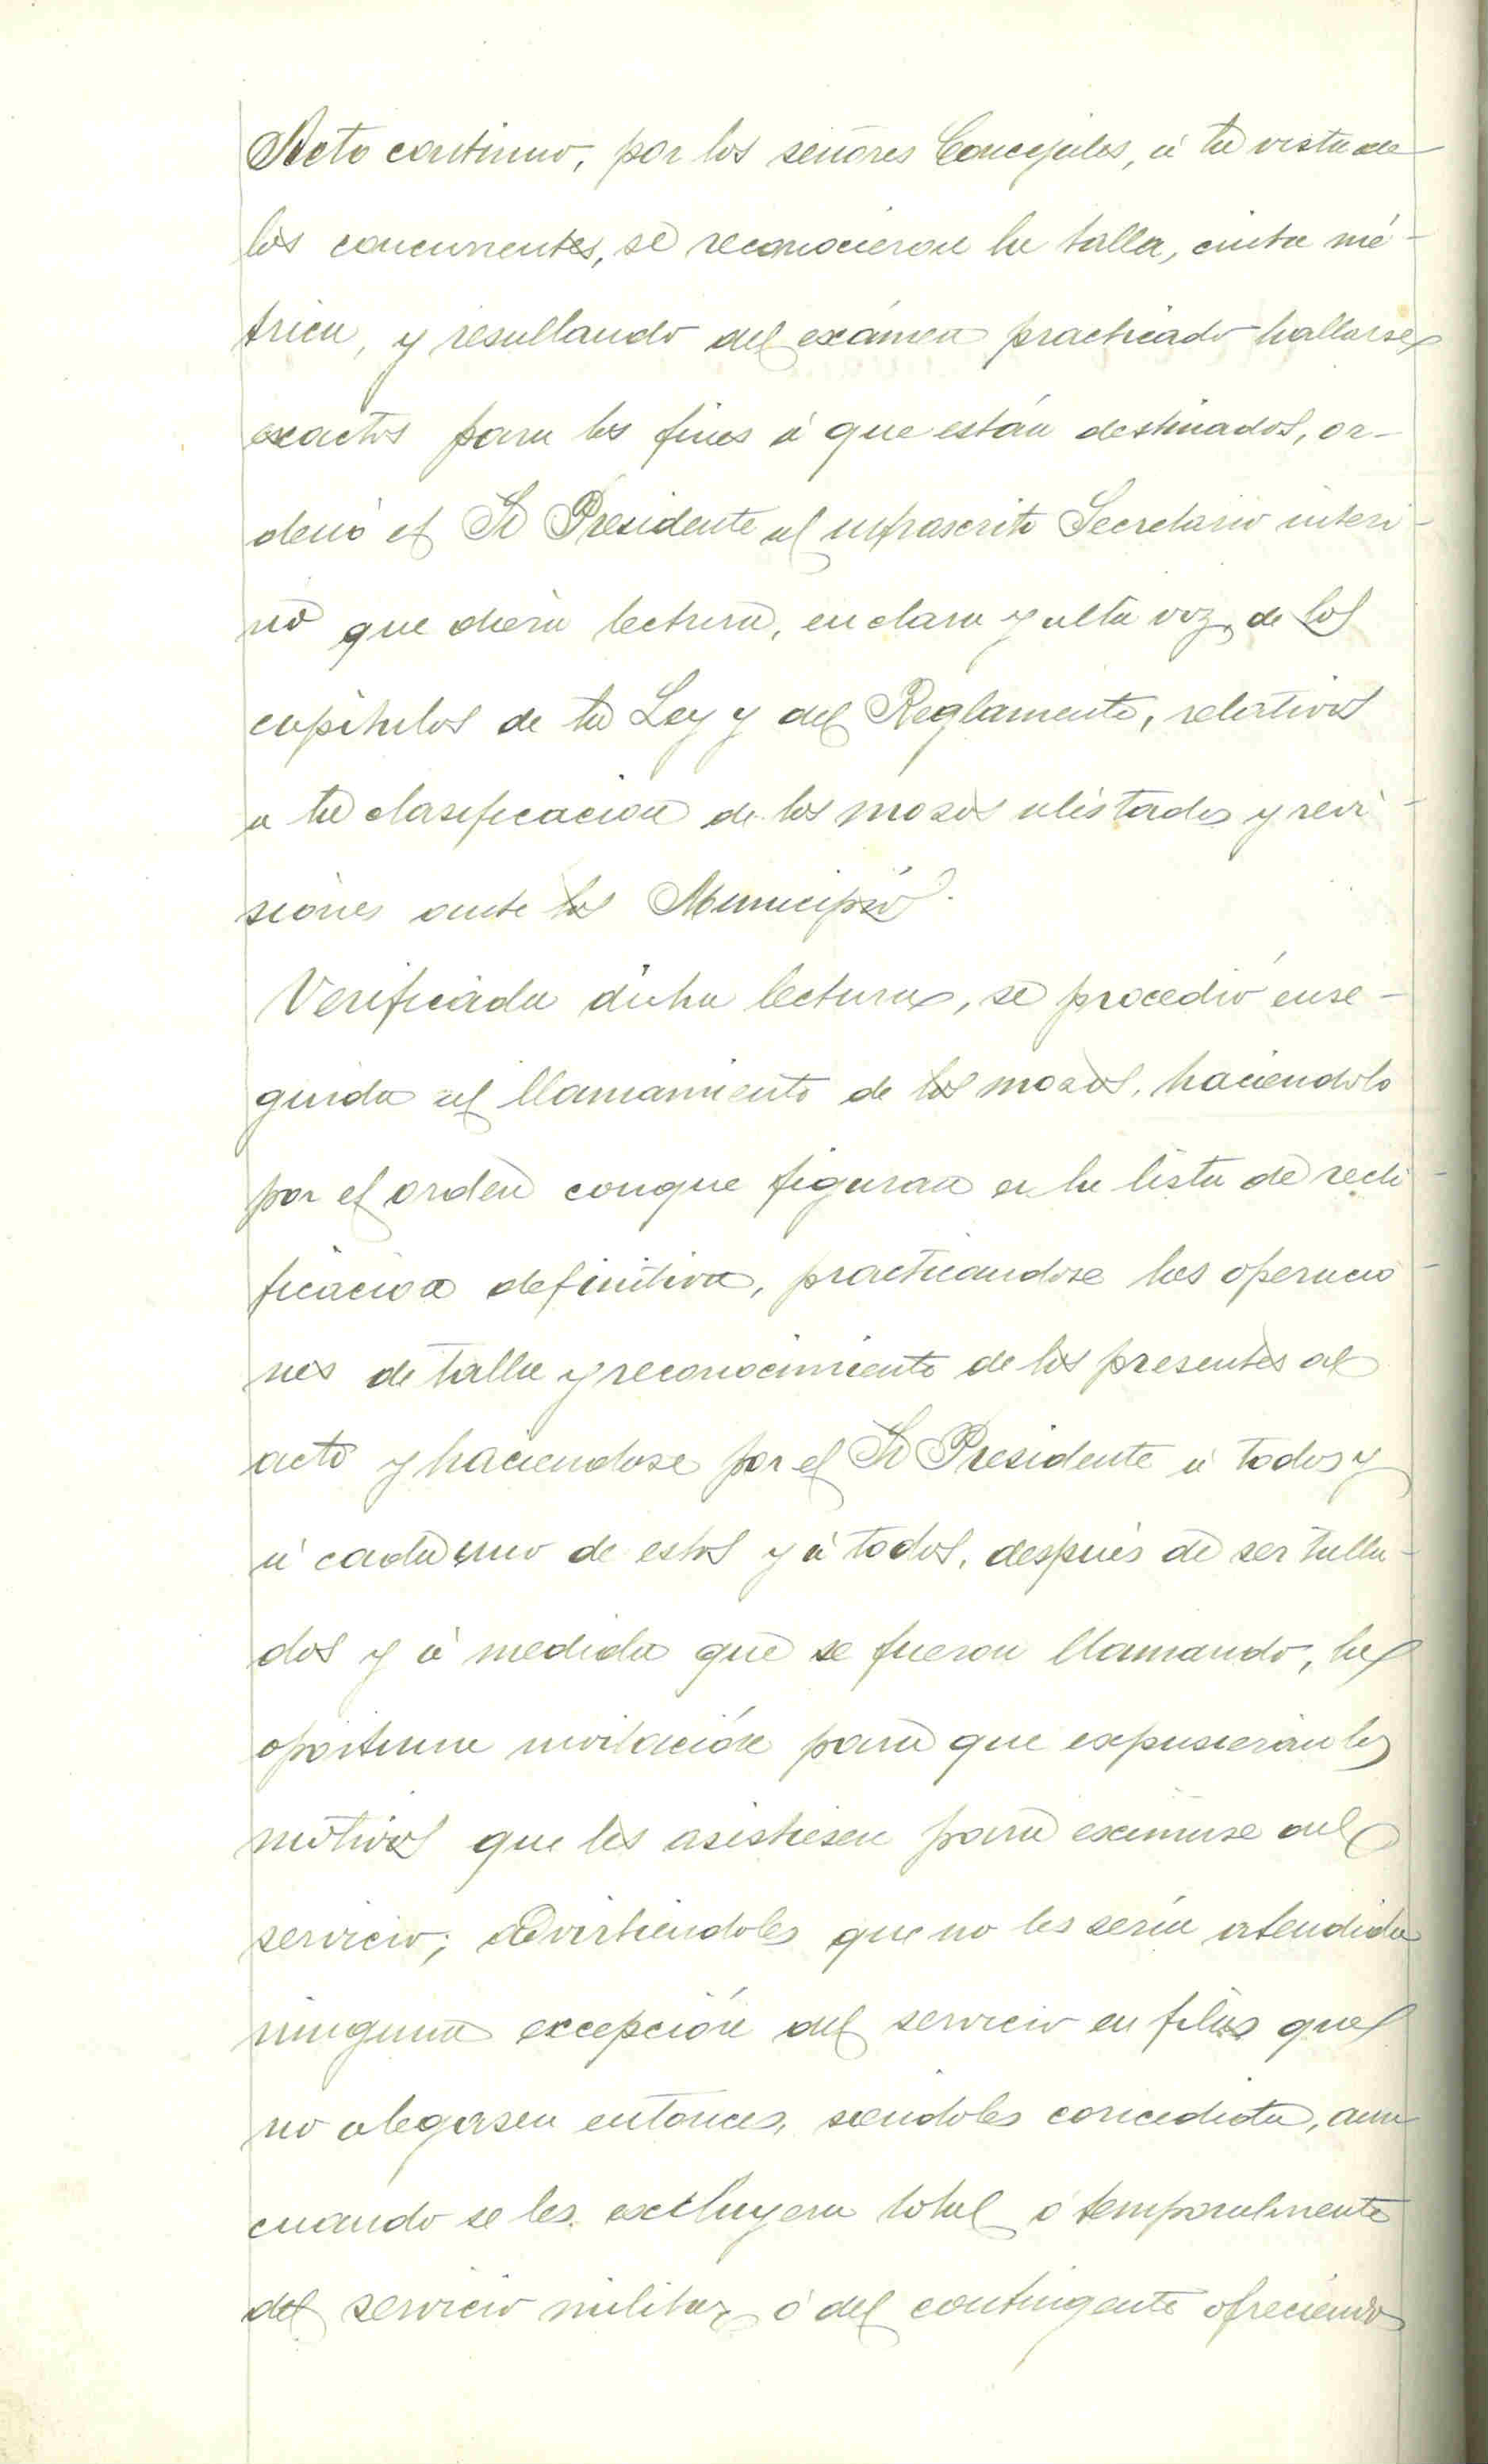 Acto continuo, por los señores Concejales, á la vista de
los concurrentes, se reconocieron la talla, cinta mé-
trica, y resultando del exámen practicado hallarse
exactos para los fines á que están destinados, or-
denó el Sr Presidente al infrascrito Secretario interi-
no que diera lectura, en clara y alta voz, de los
capítulos de la Ley y del Reglamento, relativos
a la clasificacion de los mozos alistados y revi-
siones ante los Municipio.
Verificada dicha lectura, se procedió ense-
guida al llamamiento de los mozos, haciendolo
por el orden conque figuran en la lista de recti-
ficacion definitiva, practicandose las operacio-
nes de talla y reconocimiento de los presentes al
acto y haciendose por el Sr Presidente á todos y
á cada uno de estos y á todos, después de ser talla-
dos y á medida que se fueron llamando, la
oportuna invitación para que expusieran los
motivos que les asistiesen para eximirse del
servicio; advirtiendoles que no les sería atendida
ninguna excepción del servicio en filas que
no alegasen entonces, siendoles concedida, aun
cuando se les excluyera total ó temporalmente
del servicio militar ó del contingente ofreciendo